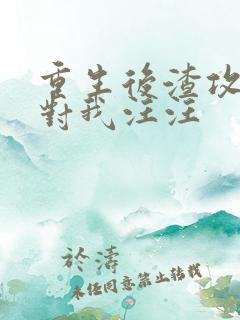 重生後渣攻
對我汪汪
於濤
未經同意禁止轉載